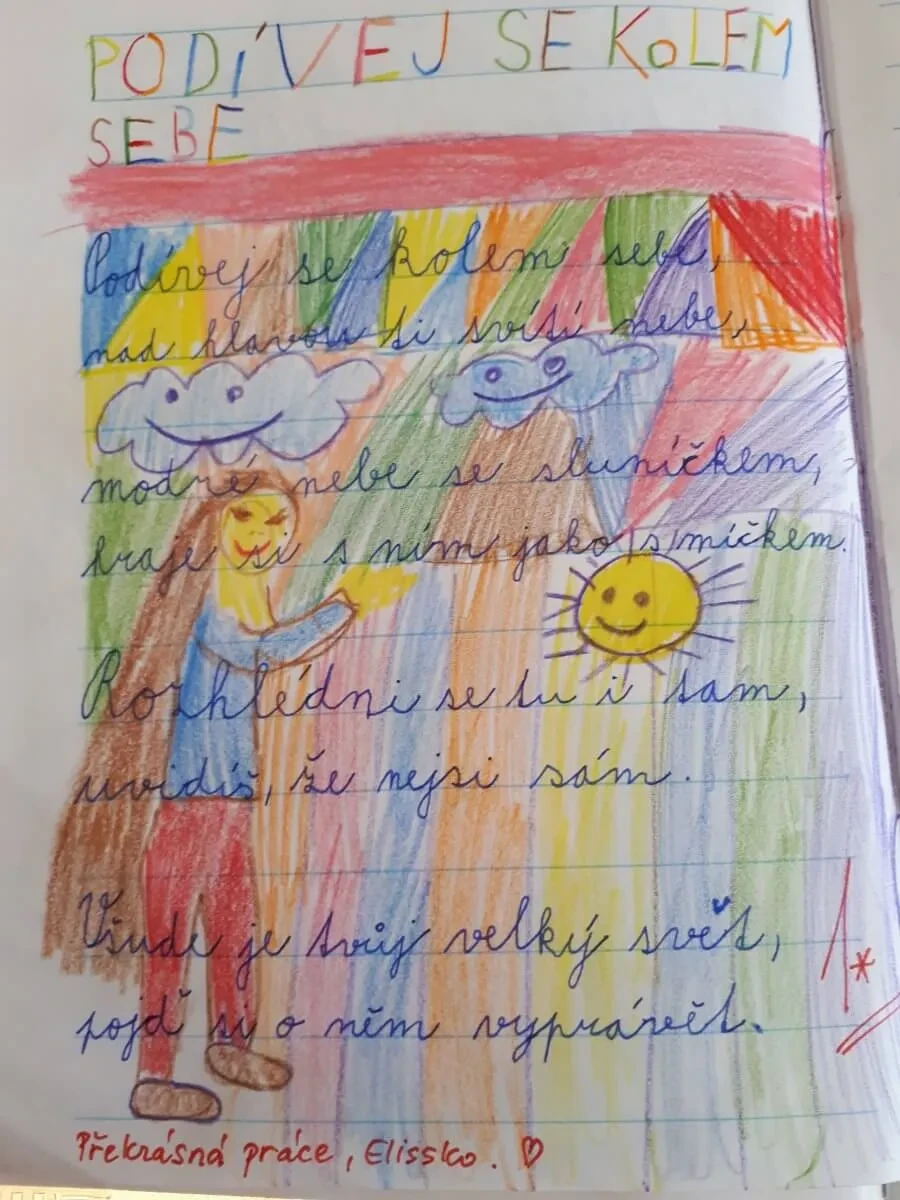 PODÍVEJ SE KOLEM
SEBE
Podívej se kolem sebe,
nad hlavou ti svítí nebe,
modré nebe se sluníčkem,
hraje si s ním jako s míčkem.
Rozhlédni se tu i tam,
uvidíš, že nejsi sám.
Všude je tvůj velký svět,
pojď si o něm vyprávět.
1*
Překrásná práce, Elissko. ♡